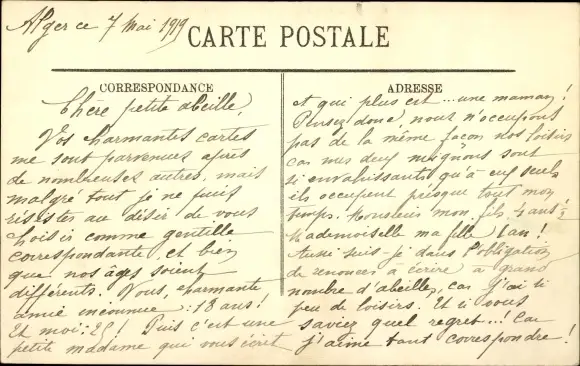 Alger ce 7 Mai 1919
CARTE POSTALE
CORRESPONDANCE
Chère petite abeille,
Vos charmantes cartes
me sont parvenues après
de nombreuses autres, mais
malgré tout je ne puis
résister au désir de vous
choisir comme gentille
correspondante, et bien
que nos âges soient
différents. Vous, charmante
amie inconnue : 18 ans!
Et moi: 25! Puis c'est une
petite madame qui vous écrit
ADRESSE
et qui plus est ... une maman!
Pensez donc, nous n'occupons
pas de la même façon nos loisirs
car mes deux mignons sont
si envahissants qu'à eux seuls
ils occupent presque tout mon
temps. Monsieur mon fils, 4 ans!
Mademoiselle ma fille 1 an!
Aussi suis-je dans l'obligation
de renoncer à écrire à grand
nombre d'abeilles, car j'ai si
peu de loisirs. Et si vous
saviez quel regret...! Car
j'aime tant correspondre!